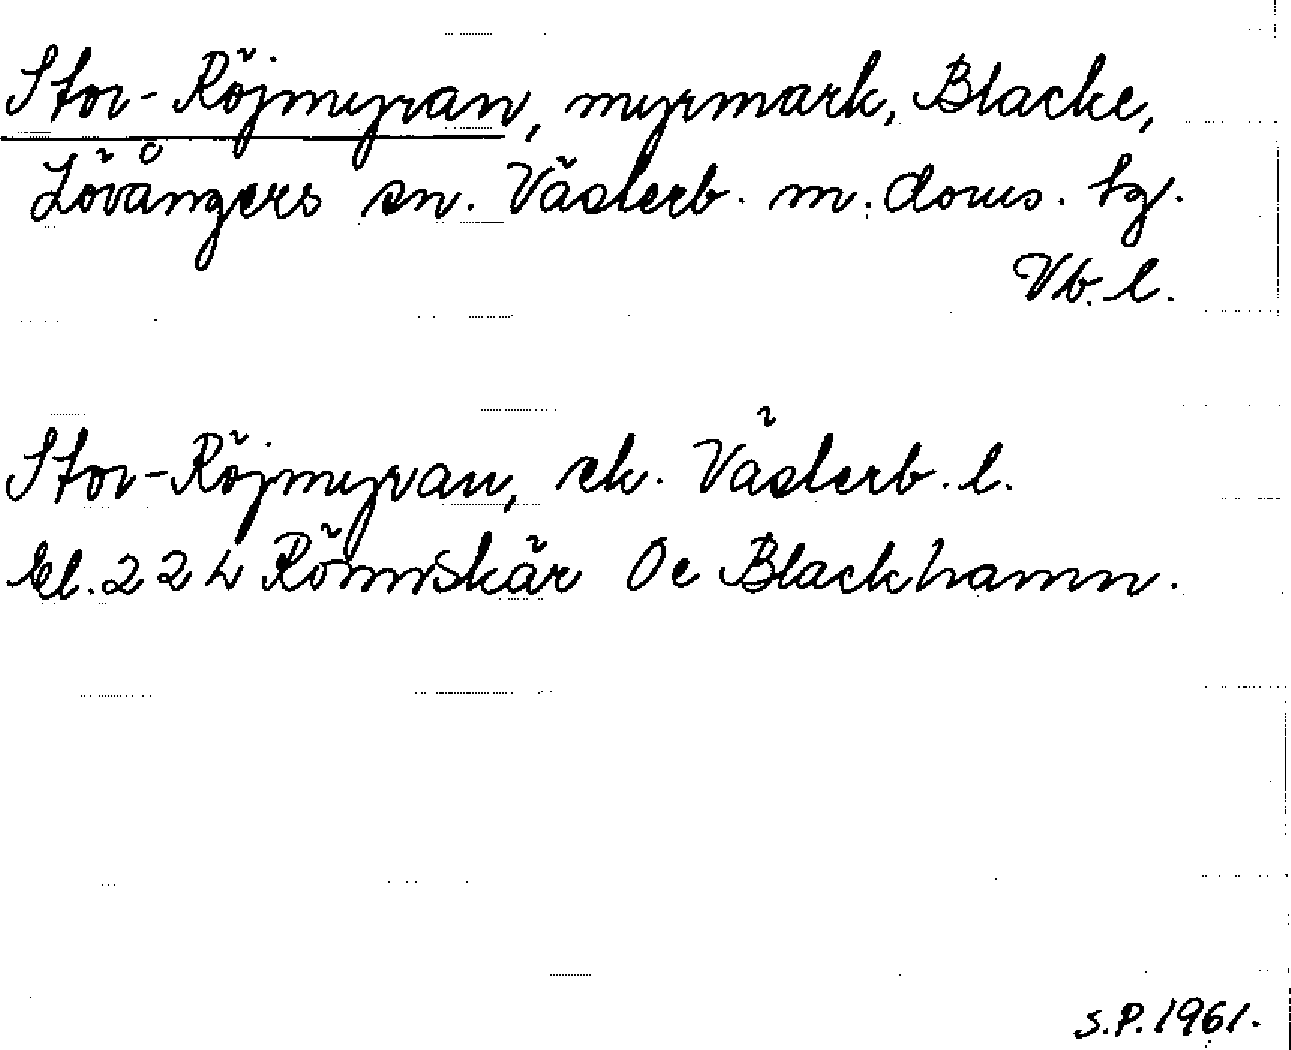 Stor-Röjmyran, myrmark, Blacke,
Lövångers sn. Västerb. m. doms. tg.
Vb. l.
Stor-Röjmyran, ek. Västerb. l.
bl. 22 L Rönnskär Oe Blackhamn.
S.P. 1961.